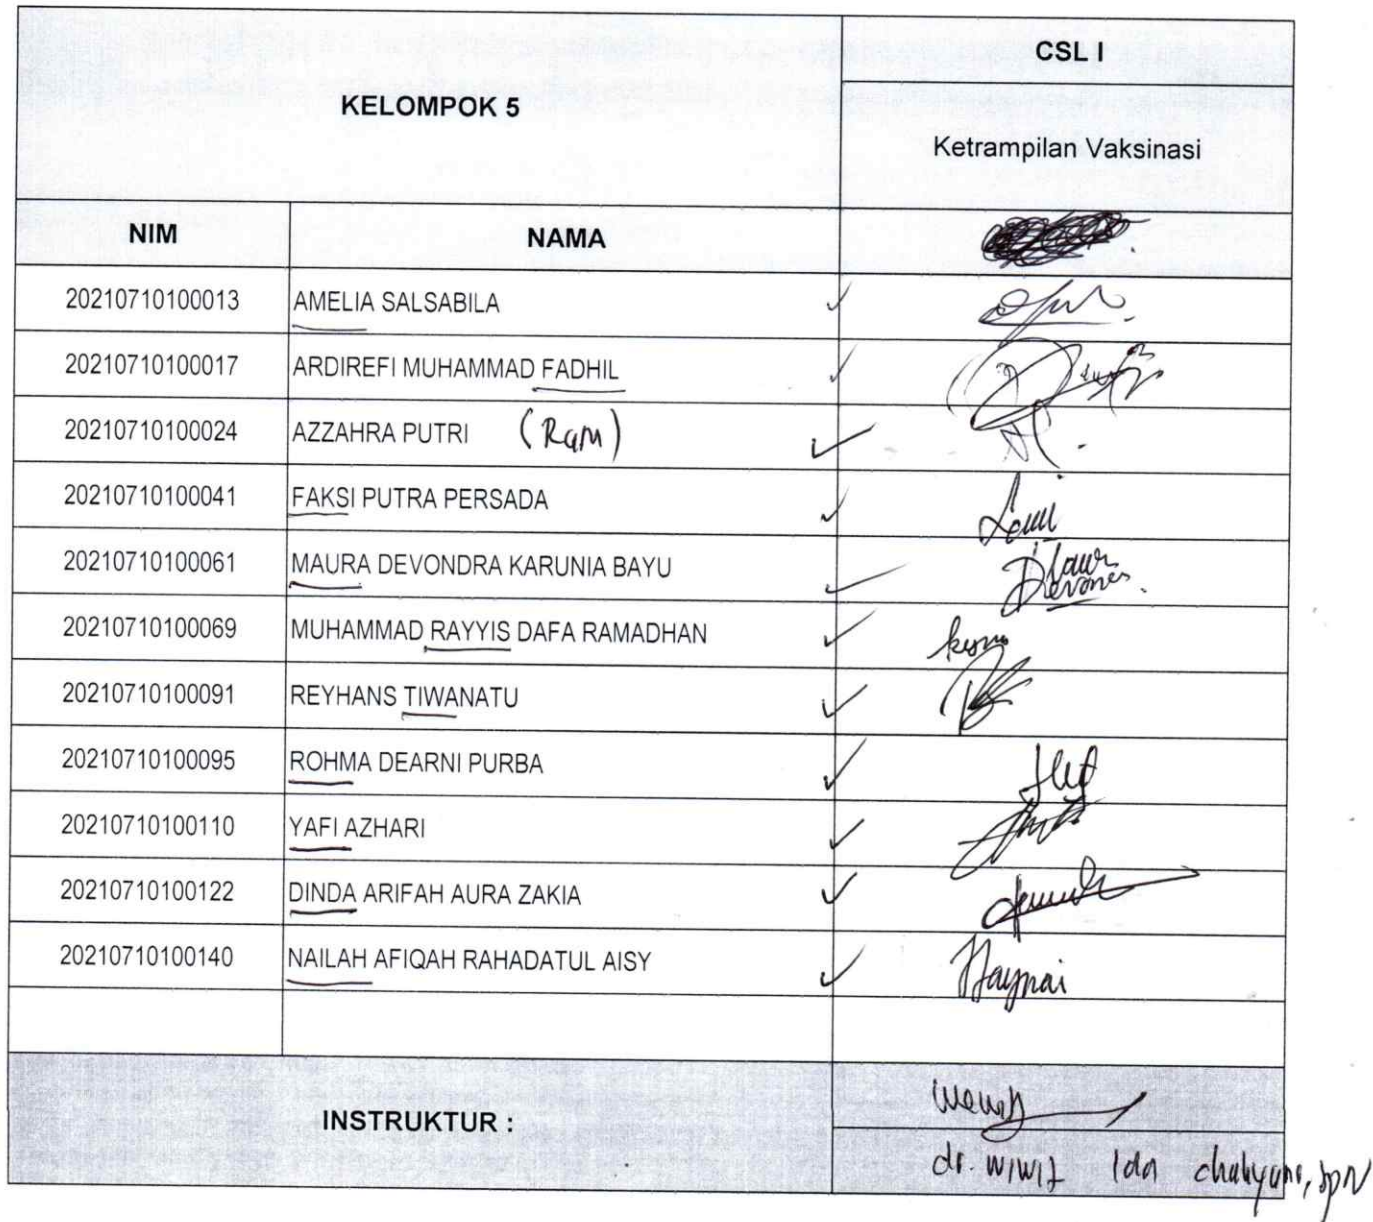 CSL I
KELOMPOK 5
Ketrampilan Vaksinasi
NIM NAMA
20210710100013 AMELIA SALSABILA
20210710100017 ARDIREFI MUHAMMAD FADHIL
20210710100024 AZZAHRA PUTRI
20210710100041 FAKSI PUTRA PERSADA
20210710100061 MAURA DEVONDRA KARUNIA BAYU
20210710100069 MUHAMMAD RAYYIS DAFA RAMADHAN
20210710100091 REYHANS TIWANATU
20210710100095 ROHMA DEARNI PURBA
20210710100110 YAFI AZHARI
20210710100122 DINDA ARIFAH AURA ZAKIA
20210710100140 NAILAH AFIQAH RAHADATUL AISY
INSTRUKTUR :
dr. wiwit Ida